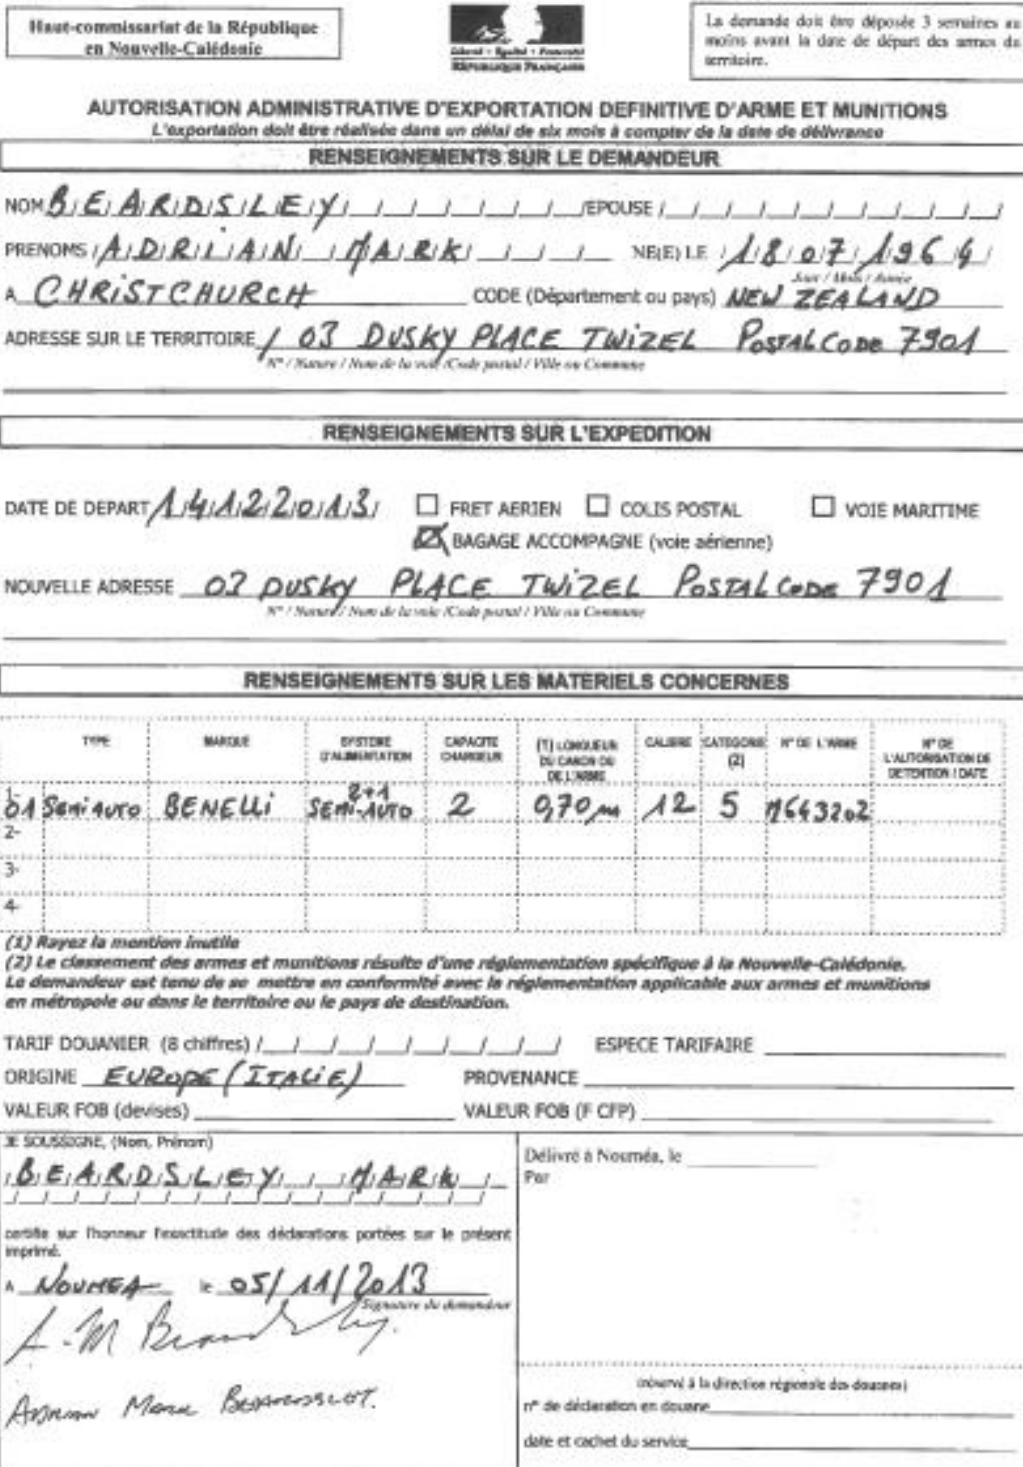 Haut-commissariat de la République
en Nouvelle-Calédonie
Liberté • Égalité • Fraternité
RÉPUBLIQUE FRANÇAISE
La demande doit être déposée 3 semaines au
moins avant la date de départ des armes du
territoire.
AUTORISATION ADMINISTRATIVE D'EXPORTATION DEFINITIVE D'ARME ET MUNITIONS
L'exportation doit être réalisée dans un délai de six mois à compter de la date de délivrance
RENSEIGNEMENTS SUR LE DEMANDEUR
NOM BEARDSLEY /EPOUSE
PRENOMS ADRIAN MARK NE(E) LE 18071964
Jour / Mois / Année
A CHRISTCHURCH CODE (Département ou pays) NEW ZEALAND
ADRESSE SUR LE TERRITOIRE 03 DUSKY PLACE TWIZEL POSTAL CODE 7901
N° / Nature / Nom de la voie /Code postal / Ville ou Commune
RENSEIGNEMENTS SUR L'EXPEDITION
DATE DE DEPART 14122013 FRET AERIEN COLIS POSTAL VOIE MARITIME
BAGAGE ACCOMPAGNE (voie aérienne)
NOUVELLE ADRESSE 03 DUSKY PLACE TWIZEL POSTAL CODE 7901
N° / Nature / Nom de la voie /Code postal / Ville ou Commune
RENSEIGNEMENTS SUR LES MATERIELS CONCERNES
TYPE MARQUE SYSTEME D'ALIMENTATION CAPACITE CHARGEUR (1) LONGUEUR DU CANON OU DE L'ARME CALIBRE CATEGORIE (2) N° DE L'ARME N° DE L'AUTORISATION DE DETENTION / DATE
1- 01 SEMI AUTO BENELLI 2+1 SEMI-AUTO 2 0,70 m 12 5 M643202
2-
3-
4-
(1) Rayez la mention inutile
(2) Le classement des armes et munitions résulte d'une réglementation spécifique à la Nouvelle-Calédonie.
Le demandeur est tenu de se mettre en conformité avec la réglementation applicable aux armes et munitions
en métropole ou dans le territoire ou le pays de destination.
TARIF DOUANIER (8 chiffres) ESPECE TARIFAIRE
ORIGINE EUROPE (ITALIE) PROVENANCE
VALEUR FOB (devises) VALEUR FOB (F CFP)
JE SOUSSIGNE, (Nom, Prénom)
BEARDSLEY MARK
certifie sur l'honneur l'exactitude des déclarations portées sur le présent
imprimé.
A NOUMEA le 05/11/2013
Signature du demandeur
A-M Beardsley.
ADRIAN MARK BEARDSLEY.
Délivré à Nouméa, le
Par
(réservé à la direction régionale des douanes)
n° de déclaration en douane
date et cachet du service